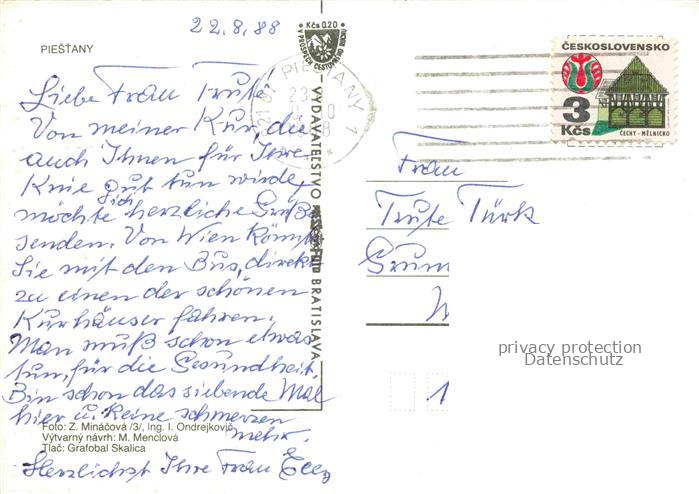 22.8.88
Kčs 0.20
PIEŠŤANY
ČESKOSLOVENSKO
3
Kčs
ČECHY - MĚLNICKO
921 01 PIEŠŤANY 1
VYDAVATEĽSTVO
BRATISLAVA
Liebe Frau Trute
Von meiner Kur, die
auch Ihnen für Ihre
Knie gut tun würde,
möchte ich herzliche Grüße
senden. Von Wien können
Sie mit den Bus, direkt
zu einen der schönen
Kurhäuser fahren.
Man muß schon etwas
tun, für die Gesundheit.
Bin schon das siebende Mal
hier u. keine schmerzen
mehr.
Herzlichst Ihre Frau
Frau
Trute Türk
privacy protection
Datenschutz
1
Foto: Z. Mináčová /3/, Ing. I. Ondrejkovič
Výtvarný návrh: M. Menclová
Tlač: Grafobal Skalica